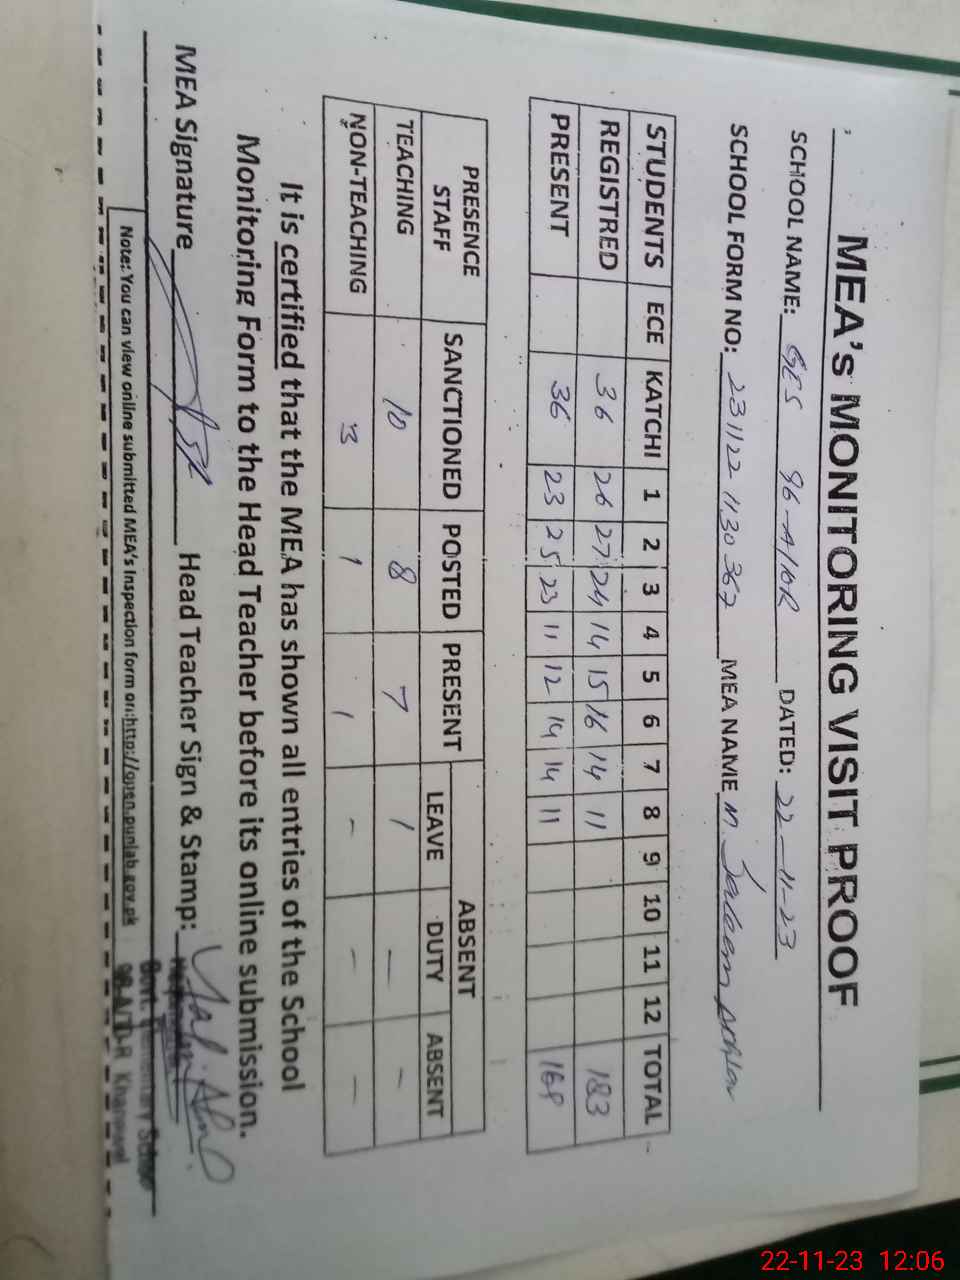 MEA's MONITORING VISIT PROOF
SCHOOL NAME: GES 96-A/10R DATED: 22-11-23
SCHOOL FORM NO: 231122 1130367 MEA NAME M.
STUDENTS ECE KATCHI 1 2 3 4 5 6 7 8 9 10 11 12 TOTAL
REGISTRED 36 26 27 24 14 15 16 14 11 183
PRESENT 36 23 25 23 11 12 14 14 11 169
PRESENCE STAFF SANCTIONED POSTED PRESENT ABSENT
LEAVE DUTY ABSENT
TEACHING 10 8 7 1 — —
NON-TEACHING 3 1 1 - — —
It is certified that the MEA has shown all entries of the School
Monitoring Form to the Head Teacher before its online submission.
MEA Signature Head Teacher Sign & Stamp:
Govt. Elementary School
96-A/10-R Khanewal
Note: You can view online submitted MEA's Inspection form on:http://open.punjab.gov.pk
22-11-23 12:06